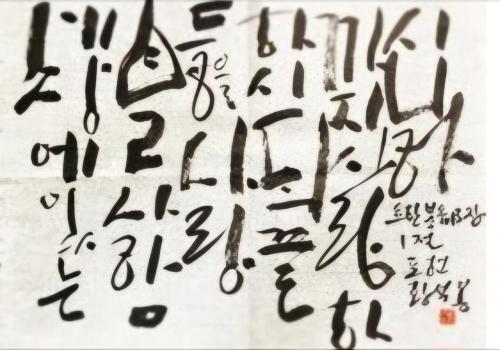 세상에있는
자기사람
들을사랑
하시되끝
까지사랑하
시니라
요한복음13장
1절